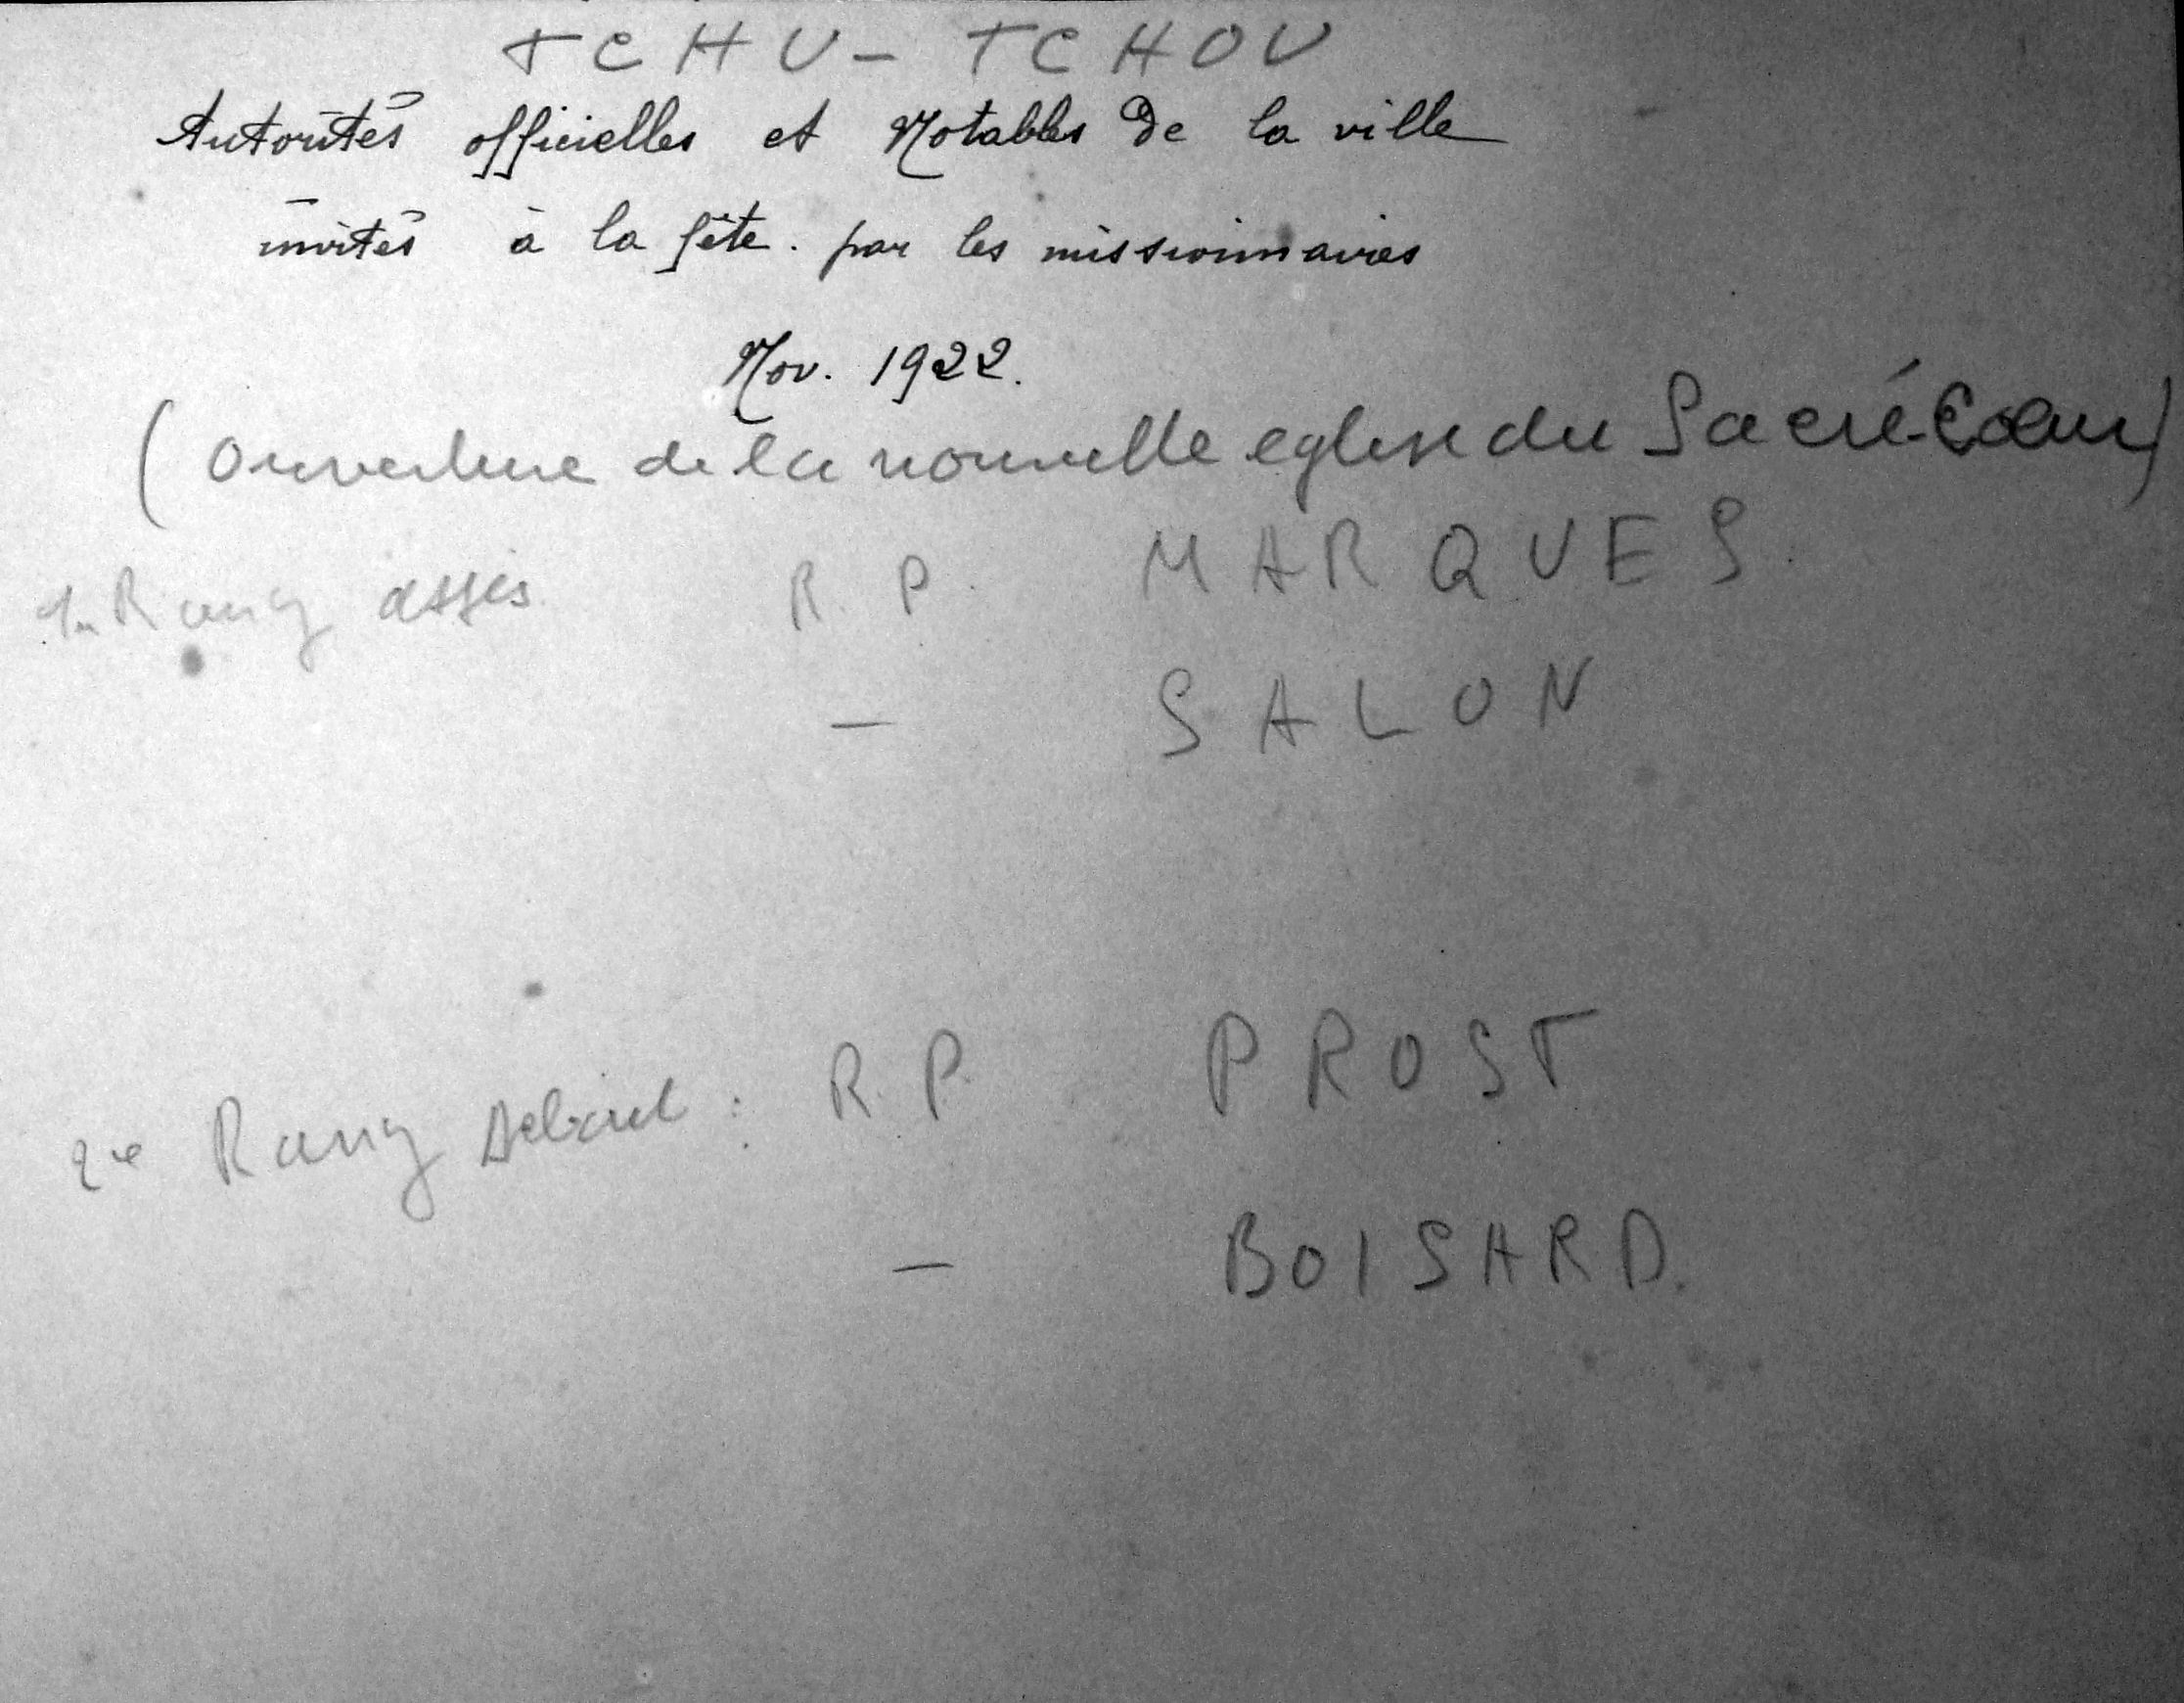 TCHU - TCHOU
Autorités officielles et Notables de la ville
invités à la fête. par les missionnaires
Nov. 1922.
(Ouverture de la nouvelle eglise du Sacré-Coeur)
1er Rang assis R. P. MARQUES
— SALON
2e Rang Debout : R. P. PROST
— BOISARD.